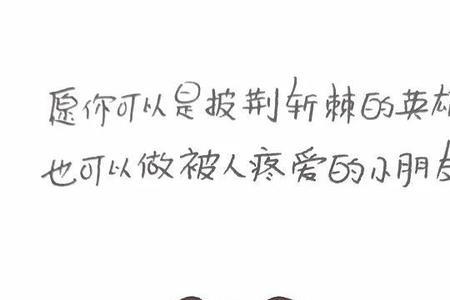 愿你可以是披荆斩棘的英雄
也可以做被人疼爱的小朋友